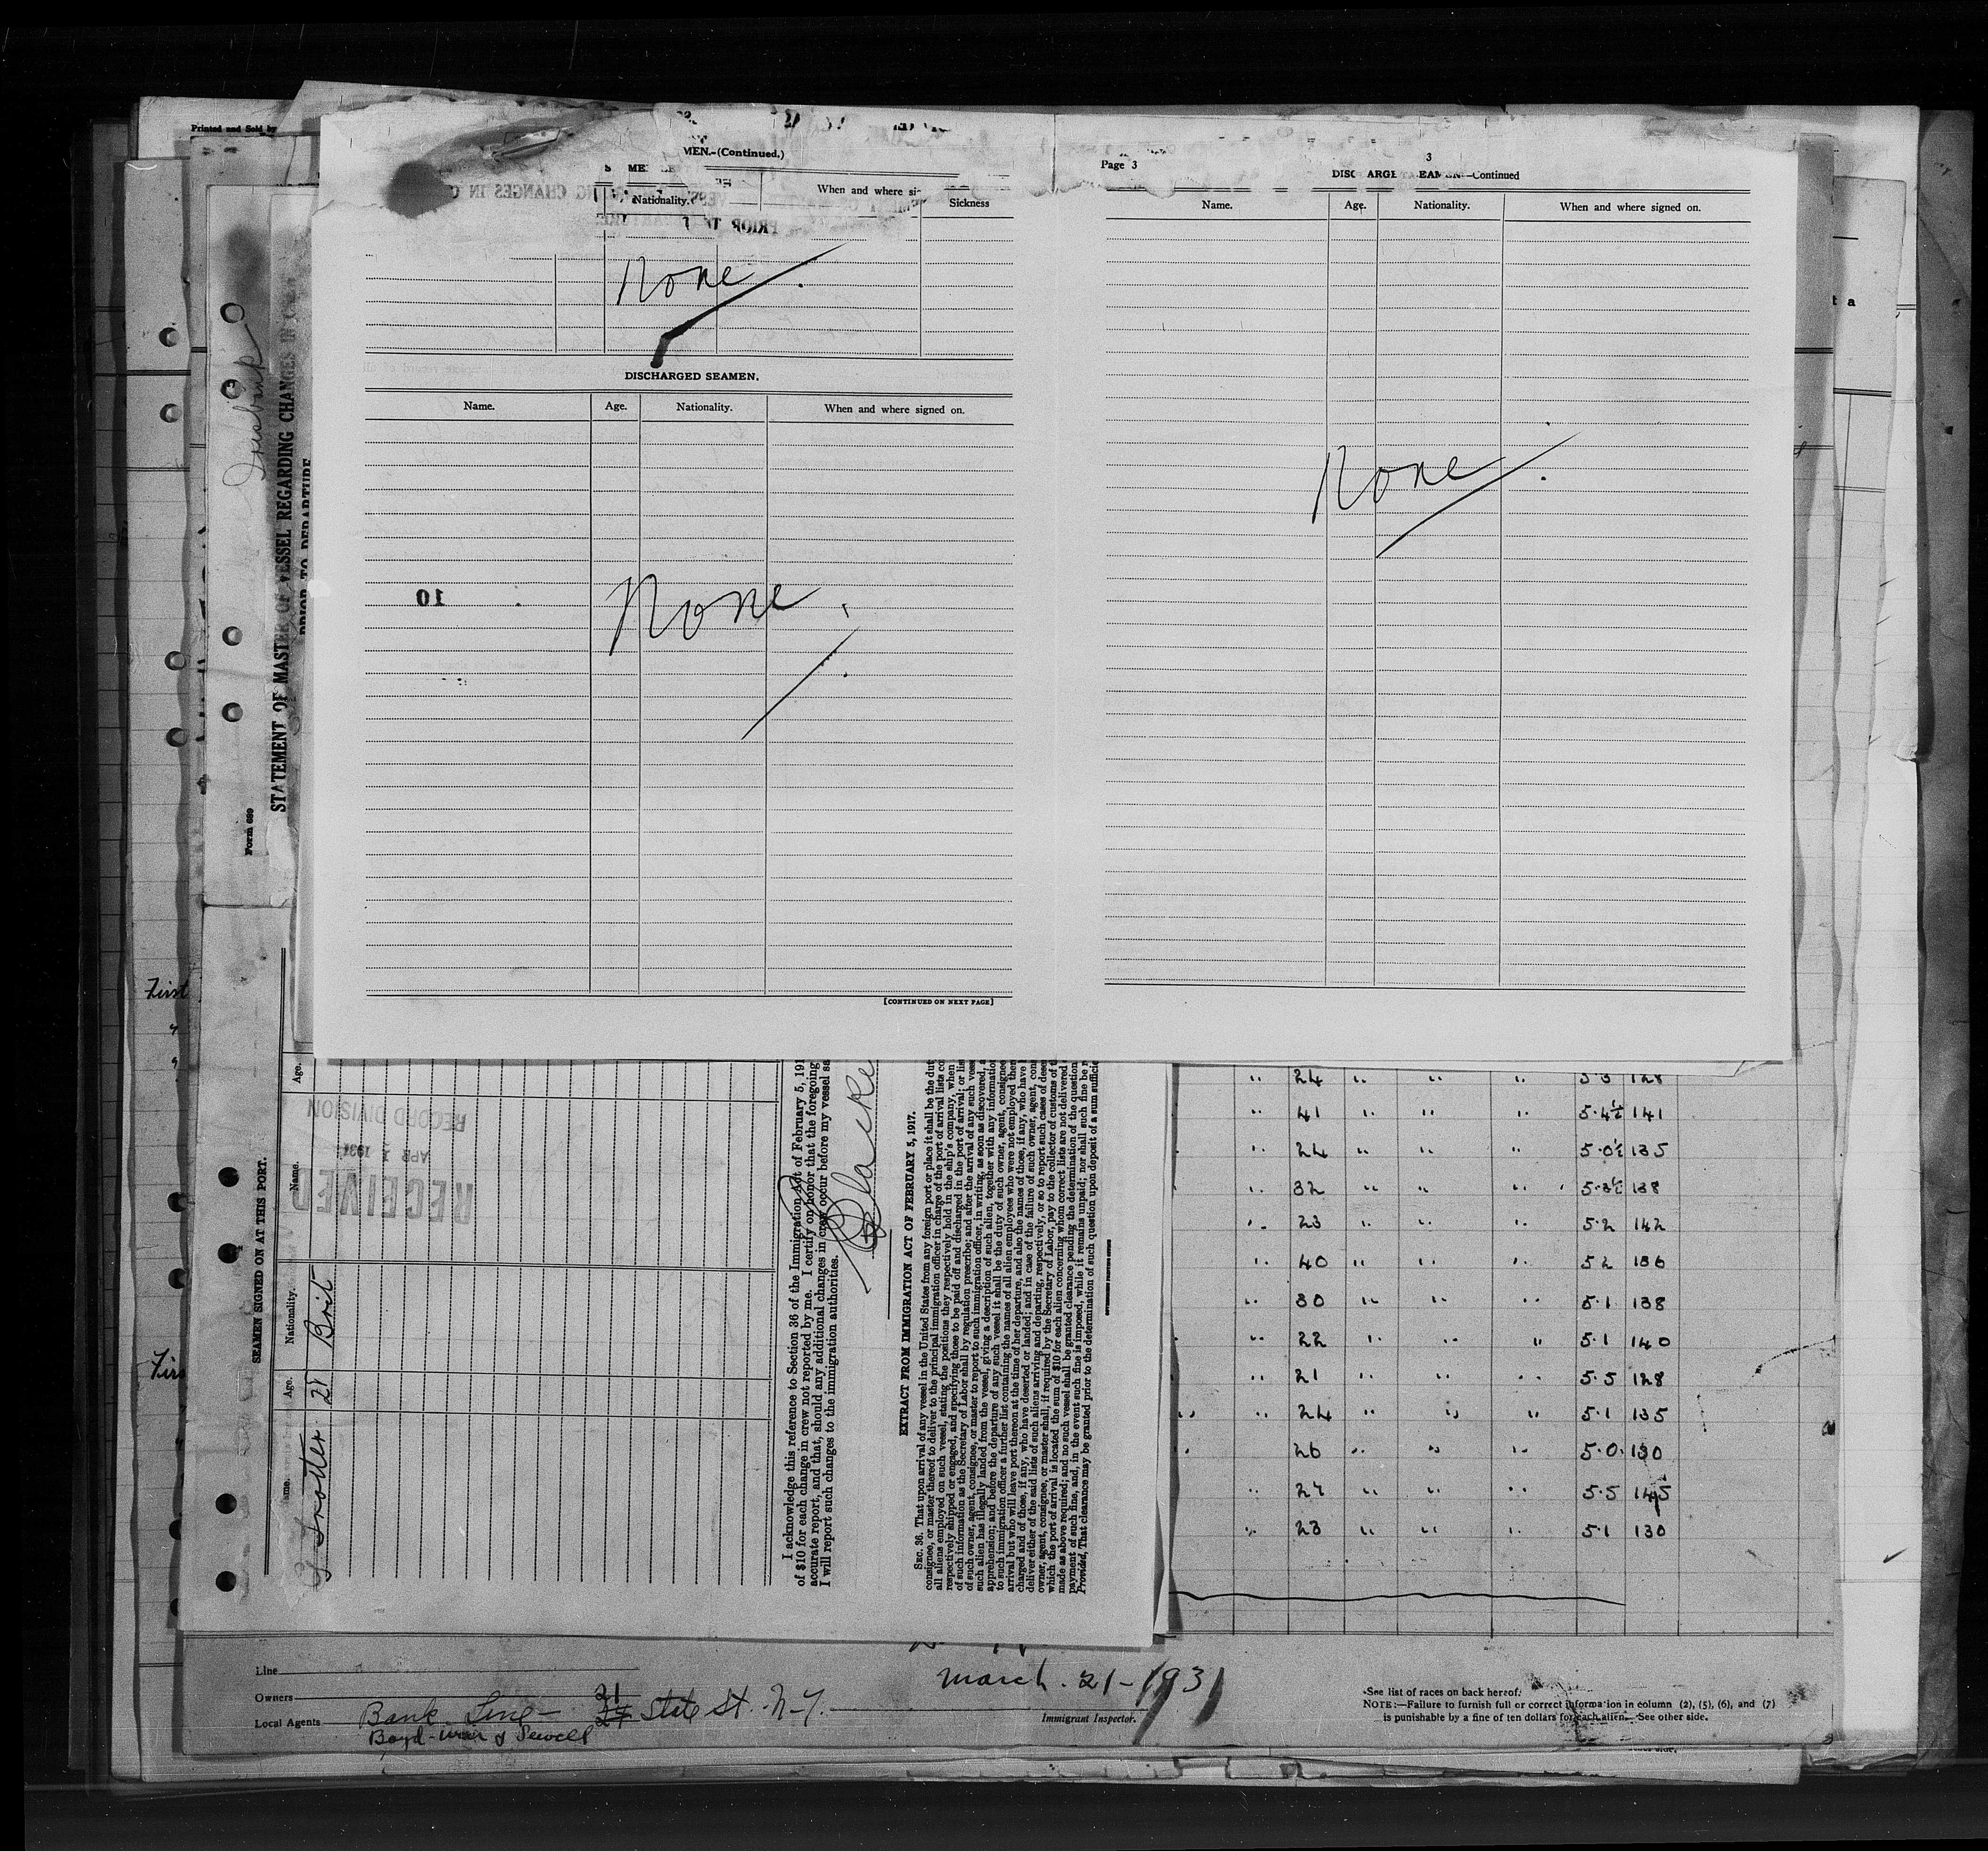 Printed and Sold by
MEN.-(Continued.)
Nationality.
When and where
Sickness
None
DISCHARGED SEAMEN.
Name. Age. Nationality. When and where signed on.
10
None
[CONTINUED ON NEXT PAGE]
Page 3
3
Continued
Name. Age. Nationality. When and where signed on.
None
STATEMENT OF MASTER OF VESSEL REGARDING CHANGES IN
PRIOR TO DEPARTURE
Form 689
First
SEAMEN SIGNED ON AT THIS PORT.
Age. Nationality. Name. Age.
Trotter 21 Brit
RECEIVED
APR 1931
RECORD DIVISION
I acknowledge this reference to Section 36 of the Immigration Act of February 5, 191
of $10 for each change in crew not reported by me. I certify on honor that the foregoing
accurate report, and that, should any additional changes in crew occur before my vessel sa
I will report such changes to the immigration authorities.
EXTRACT FROM IMMIGRATION ACT OF FEBRUARY 5, 1917.
SEC. 36. That upon arrival of any vessel in the United States from any foreign port or place it shall be the dut
consignee, or master thereof to deliver to the principal immigration officer in charge of the port of arrival lists co
all aliens employed on such vessel, stating the positions they respectively hold in the ship's company, when
respectively shipped or engaged, and specifying those to be paid off and discharged in the port of arrival; or lis
of such information as the Secretary of Labor shall by regulation prescribe; and after the arrival of any such vess
of such owner, agent, consignee, or master to report to such immigration officer, in writing, as soon as discovered, a
such alien has illegally landed from the vessel, giving a description of such alien, together with any information
apprehension; and before the departure of any such vessel it shall be the duty of such owner, agent, consignee
to such immigration officer a further list containing the names of all alien employees who were not employed ther
arrival but who will leave port thereon at the time of her departure, and also the names of those, if any, who have
charged and of those, if any, who have deserted or landed; and in case of the failure of such owner, agent, con
deliver either of the said lists of such aliens arriving and departing, respectively, or so to report such cases of dese
owner, agent, consignee, or master shall, if required by the Secretary of Labor, pay to the collector of customs of t
which the port of arrival is located the sum of $10 for each alien concerning whom correct lists are not delivered
made as above required; and no such vessel shall be granted clearance pending the determination of the question
payment of such fine, and, in the event such fine is imposed, while it remains unpaid; nor shall such fine be r
Provided, That clearance may be granted prior to the determination of such question upon deposit of a sum sufficie
" 24 " " " 5 3 128
" 41 " " " 5·4½ 141
" 24 " " " 5·0½ 135
" 32 " " " 5·3½ 138
" 23 " " " 5·2 142
" 40 " " " 5 2 136
" 30 " " " 5·1 138
" 22 " " " 5·1 140
" 21 " " " 5·5 128
" " 24 " " " 5·1 135
" 26 " " " 5·0 130
" 27 " " " 5·5 145
" 23 " " " 5·1 130
March. 21-1931
Line
Owners
Local Agents Bank Line - 21 State St. N-Y.
Boyd-Weir & Sewell
Immigrant Inspector.
See list of races on back hereof.
NOTE:—Failure to furnish full or correct information in column (2), (5), (6), and (7)
is punishable by a fine of ten dollars for each alien. See other side.